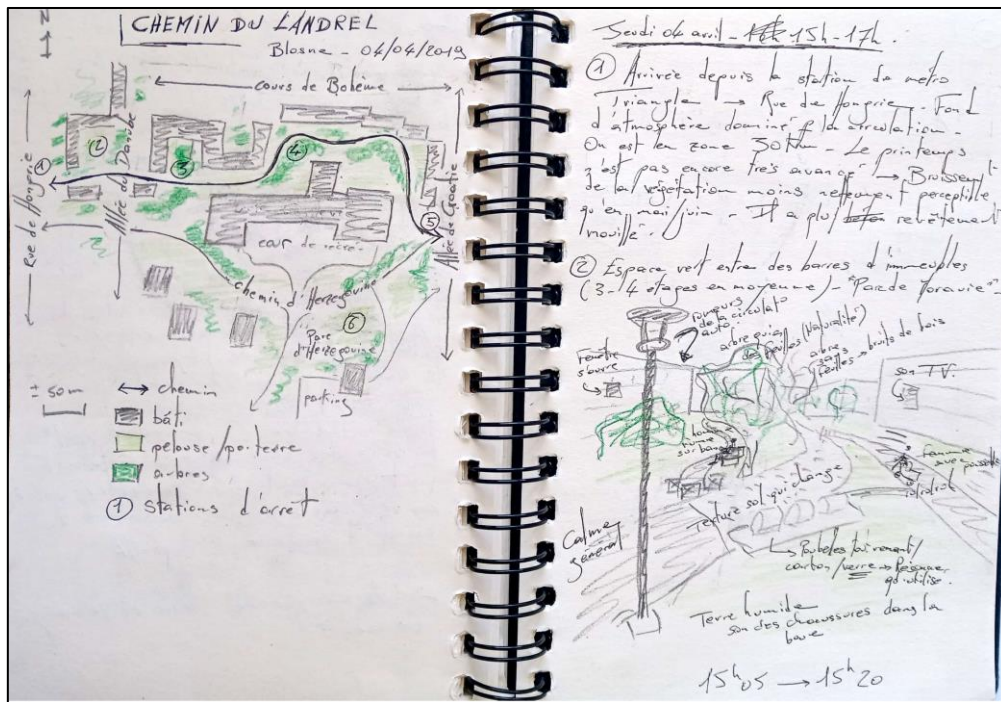 N
CHEMIN DU LANDREL
Blosne - 04/04/2019
cours de Bohème
Rue de Hongrie
Allée du Danube
Allée de Croatie
1
2
3
4
5
6
cour de récré.
chemin d'Herzégovine
Parc
d'Herzégovine
parking
± 50m
chemin
bâti
pelouse/parterre
arbres
① stations d'arrêt
Jeudi 04 avril - 15h - 17h.
① Arrivée depuis la station de métro
Triangle → Rue de Hongrie. Fond
d'atmosphère dominé la circulation.
On est en zone 30 km. Le printemps
n'est pas encore très avancé → Bruissemt
de la végétation moins perceptible
qu'en mai/juin - Il a plu revêtement
mouillé.
② Espace vert entre des barres d'immeubles
(3-4 étages en moyenne) -
rumeurs
de la circulat°
auto.
fenêtre
s'ouvre
arbre
feuilles (Naturalité)
arbre
sans
feuilles → bruits de bois
son TV.
homme
fume
sur banc
femme
avec
poussette
Texture sol qui change
Calme
général
↳ Poubelles
carton/verre → Personne
qui utilise.
Terre humide
son des chaussures dans la
boue
15h05 → 15h20